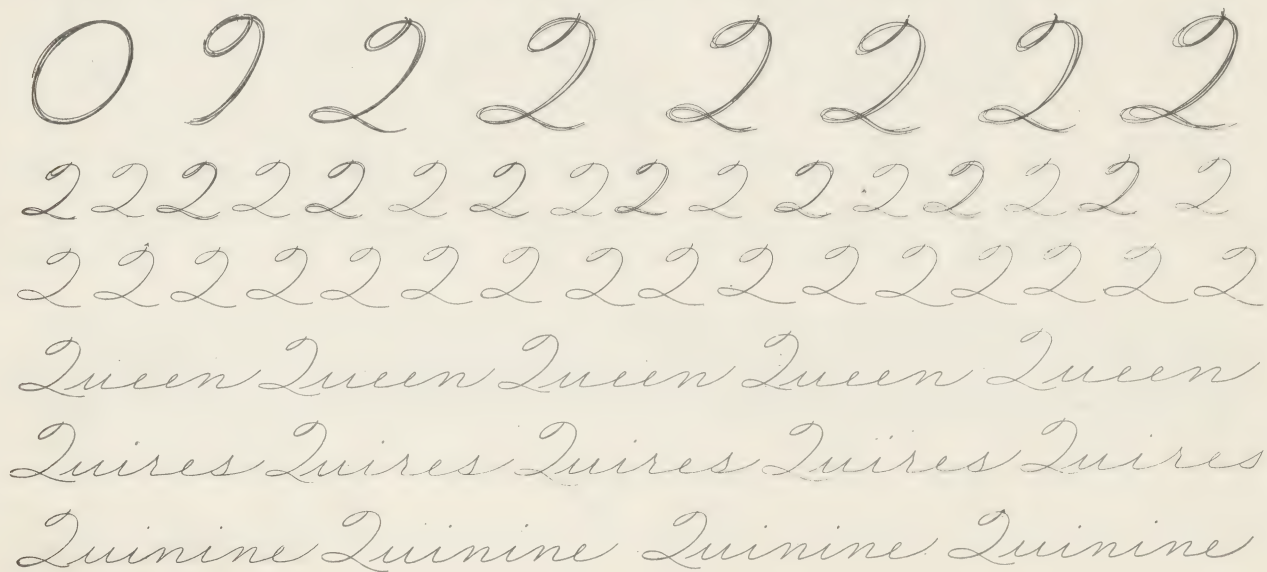 O 9 Q Q Q Q Q Q
Q Q Q Q Q Q Q Q Q Q Q Q Q Q Q Q
Q Q Q Q Q Q Q Q Q Q Q Q Q Q Q Q
Queen Queen Queen Queen Queen
Quires Quires Quires Quires Quires
Quinine Quinine Quinine Quinine